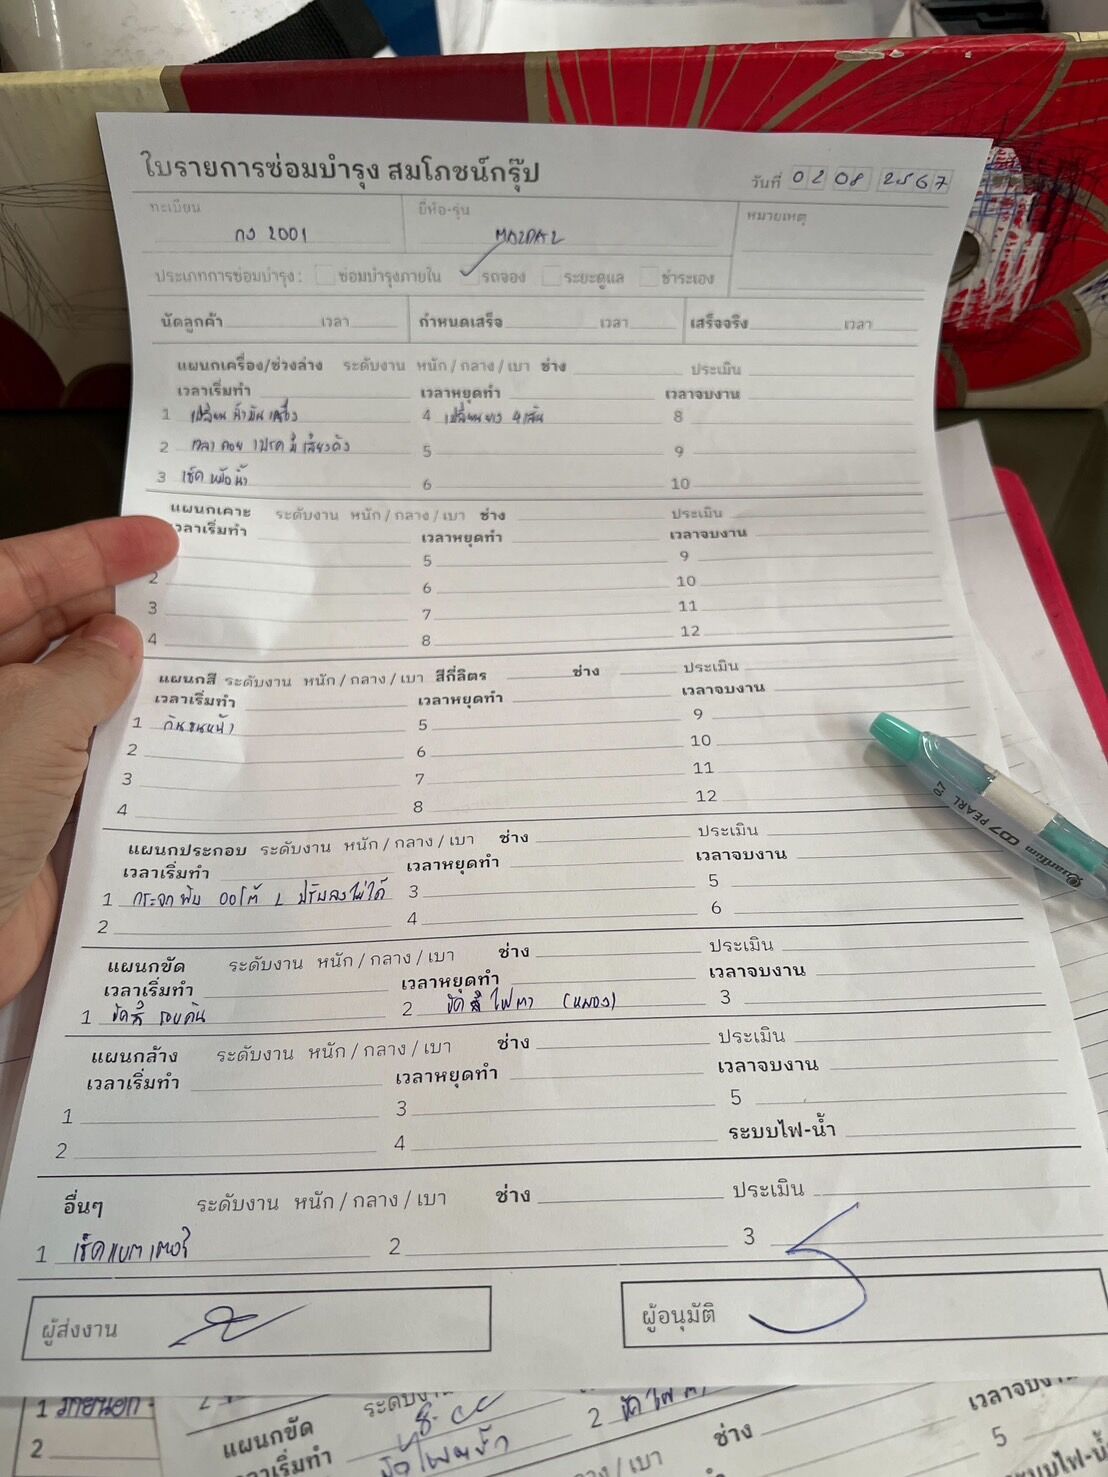 ใบรายการซ่อมบำรุง สมโภชน์กรุ๊ป
วันที่ 02 08 2567
ทะเบียน
กง 2001
ยี่ห้อ-รุ่น
MAZDA2
หมายเหตุ
ประเภทการซ่อมบำรุง : ซ่อมบำรุงภายใน รถจอง ระยะดูแล ชำระเอง
นัดลูกค้า เวลา กำหนดเสร็จ เวลา เสร็จจริง เวลา
แผนกเครื่อง/ช่วงล่าง ระดับงาน หนัก / กลาง / เบา ช่าง ประเมิน
เวลาเริ่มทำ เวลาหยุดทำ เวลาจบงาน
1 เปลี่ยนน้ำมันเครื่อง 4 เปลี่ยนยาง 4 เส้น 8
2 เวลาถอย เบรค มีเสียงดัง 5 9
3 เช็คหม้อน้ำ 6 10
แผนกเคาะ ระดับงาน หนัก / กลาง / เบา ช่าง ประเมิน
เวลาเริ่มทำ เวลาหยุดทำ เวลาจบงาน
5 9
2 6 10
3 7 11
4 8 12
แผนกสี ระดับงาน หนัก / กลาง / เบา สีกี่ลิตร ช่าง ประเมิน
เวลาเริ่มทำ เวลาหยุดทำ เวลาจบงาน
1 กันชนหน้า 5 9
2 6 10
3 7 11
4 8 12
แผนกประกอบ ระดับงาน หนัก / กลาง / เบา ช่าง ประเมิน
เวลาเริ่มทำ เวลาหยุดทำ เวลาจบงาน
1 กระจกพับ ออโต้ L ปรับลงไม่ได้ 3 5
2 4 6
แผนกขัด ระดับงาน หนัก / กลาง / เบา ช่าง ประเมิน
เวลาเริ่มทำ เวลาหยุดทำ เวลาจบงาน
1 ขัดสี รอบคัน 2 ขัดสี ไฟตา (หมอง) 3
แผนกล้าง ระดับงาน หนัก / กลาง / เบา ช่าง ประเมิน
เวลาเริ่มทำ เวลาหยุดทำ เวลาจบงาน
1 3 5
2 4 ระบบไฟ-น้ำ
อื่นๆ ระดับงาน หนัก / กลาง / เบา ช่าง ประเมิน
1 เช็คแบตเตอรี่ 2 3
ผู้ส่งงาน ผู้อนุมัติ
Quantum 007 PEARL 0.7
1 ภายนอก
2
ระดับงาน
แผนกขัด
เวลาเริ่มทำ
2 ขัดไฟตา
ช่าง
เวลาจบงาน
5